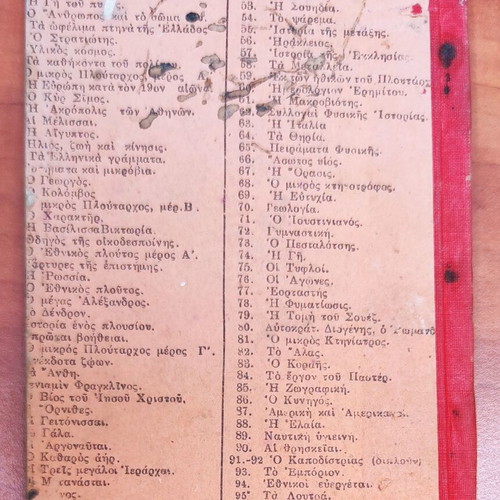 Ἡ Γῆ τοῦ πυρός.
Ὁ Ἄνθρωπος καὶ τὸ σῶμα
Τὰ ὠφέλιμα πτηνὰ τῆς Ἑλλάδος
Ὁ Στρατιώτης.
Ὑλικὸς κόσμος.
Τὰ καθήκοντα τοῦ πολίτου.
Ὁ μικρὸς Πλούταρχος μέρος Α΄.
Ἡ Εὐρώπη κατὰ τὸν 19ον αἰῶνα.
Ὁ Κὺρ Σίμος.
Ἡ Ἀκρόπολις τῶν Ἀθηνῶν.
Αἱ Μέλισσαι.
Ἡ Αἴγυπτος.
Ἥλιος, ζωὴ καὶ κίνησις.
Τὰ Ἑλληνικὰ γράμματα.
καὶ μικρόβια.
Ὁ Γεωργός.
Ὁ Κολόμβος
μικρὸς Πλούταρχος, μέρ. Β.
Ὁ Χαρακτήρ.
Ἡ Βασίλισσα Βικτωρία.
Ὁδηγὸς τῆς οἰκοδεσποίνης.
Ὁ Ἐθνικὸς πλοῦτος μέρος Α΄.
Μάρτυρες τῆς ἐπιστήμης.
Ἡ Ρωσσία.
Ὁ Ἐθνικὸς πλοῦτος.
Ὁ μέγας Ἀλέξανδρος.
Τὸ Δένδρον.
Ἱστορία ἑνὸς πλουσίου.
πρῶται βοήθειαι.
Ὁ μικρὸς Πλούταρχος μέρος Γ΄.
Ἀνέκδοτα ζῴων.
Τὰ Ἄνθη.
Βενιαμὶν Φραγκλῖνος.
Ὁ Βίος τοῦ Ἰησοῦ Χριστοῦ.
Ὄρνιθες.
Γείτονισσαι.
Γάλα.
Ἀργοναῦται.
Ὁ Καθαρὸς ἀήρ.
Τρεῖς μεγάλοι Ἱεράρχαι.
53. Ἡ Σουηδία.
54. Τὸ ψάρεμα.
55. Ἱστορία τῆς μετάξης.
56. Ἡράκλειος.
57. Ἱστορία τῆς Ἐκκλησίας.
58. Τὰ Μεταλλεῖα.
59. Ἐκ τῶν ἠθικῶν τοῦ Πλουτάρχ
60. Ἡμερολόγιον Ἐρημίτου.
61. Ἡ Μακροβιότης.
62. Συλλογαὶ Φυσικῆς Ἱστορίας.
63. Ἡ Ἰταλία
64. Τὰ Θηρία.
65. Πειράματα Φυσικῆς.
66. Ἄσωτος υἱός.
67. Ἡ Ὅρασις.
68. Ὁ μικρὸς κτηνοτρόφος.
69. Ἡ Εὐτυχία.
70. Γεωλογία.
71. Ὁ Ἰουστινιανός.
72. Γυμναστική.
73. Ὁ Πεσταλότσης.
74. Ἡ Γῆ.
75. Οἱ Τυφλοί.
76. Οἱ Ἀγῶνες.
77. Ἑορταστής
78. Ἡ Φυματίωσις.
79. Ἡ Τομὴ τοῦ Σουέζ.
80. Αὐτοκράτ. Διογένης, ὁ Ῥωμανὸ
81. Ὁ μικρὸς Κτηνίατρος.
82. Τὸ Ἅλας.
83. Ὁ Κοραῆς.
84. Τὸ ἔργον τοῦ Παστέρ.
85. Ἡ Ζωγραφική.
86. Ὁ Κυνηγός.
87. Ἀμερικὴ καὶ Ἀμερικανοί.
88. Ἡ Ἐλαία.
89. Ναυτικὴ ὑγιεινή.
90. Αἱ θρησκεῖαι.
91.-92 Ὁ Καποδίστριας (διπλοῦν)
93. Τὸ Ἐμπόριον.
94. Ἐθνικοὶ εὐεργέται.
95 Τὰ Λουτρά.